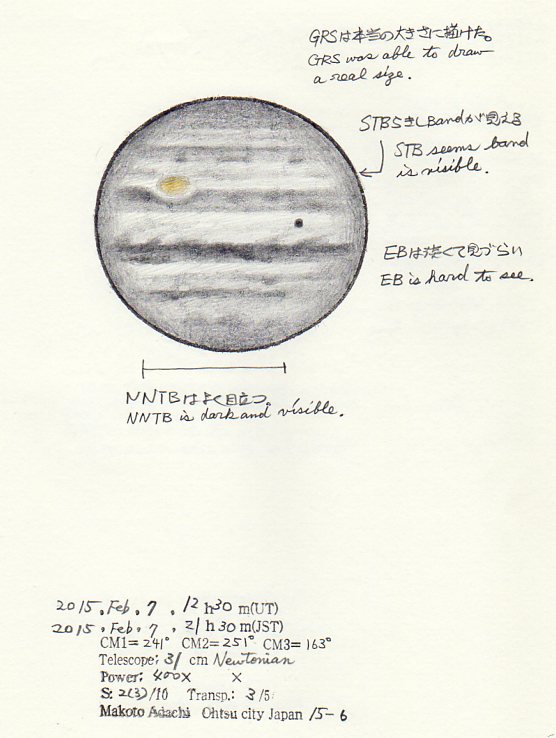 GRSは本当の大きさに描けた。
GRS was able to draw
a real size.
STBらきしBandが見える
STB seems band
is visible.
EBは淡くて見づらい
EB is hard to see.
NNTBはよく目立つ。
NNTB is dark and visible.
2015. Feb. 7 . 12 h 30 m(UT)
2015. Feb. 7 . 21 h 30 m(JST)
CM1= 241° CM2= 251° CM3= 163°
Telescope; 31 cm Newtonian
Power; 400× ×
S: 2(3)/10 Transp.: 3/5
Makoto Adachi Ohtsu city Japan 15-6